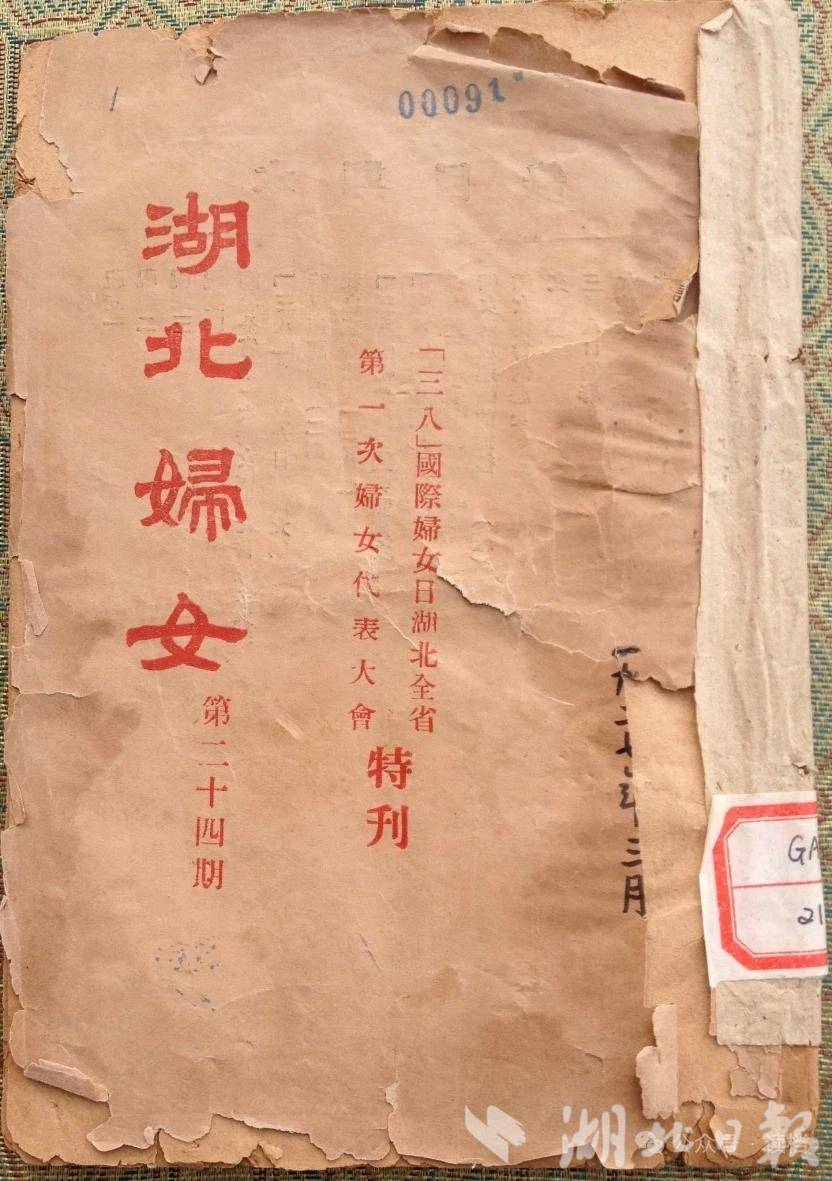 00091
「三八」國際婦女日湖北全省
第一次婦女代表大會
特刊
湖北婦女
第二十四期
年三月
GA
21
湖北日報
公众号